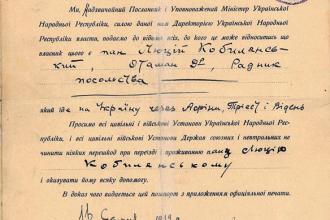 Ми, Надзвичайний Посланник і Уповноважений Міністр Української
Народньої Республіки, силою даної нам Директорією Української Народньої
Республіки власти, подаємо до відома всіх, до кого це може відноситись що
власник цього є пан Люцій Кобилянсь-
кий, Отаман Др, Радник
посольства
який їде на Україну через Атіни, Трієст і Відень
Просимо всі цивільні військові Установи Української Народної Рес-
публіки, і всі цивільні військові Установи Держав союзних і нетральних не
чинити ніяких перешкод при переїзді і проживанню пану Люцію
Кобилянському
і оказувати йому всяку допомогу.
В доказ чого видається цей пашпорт з приложенням офіціяльної печаті.
16 1919